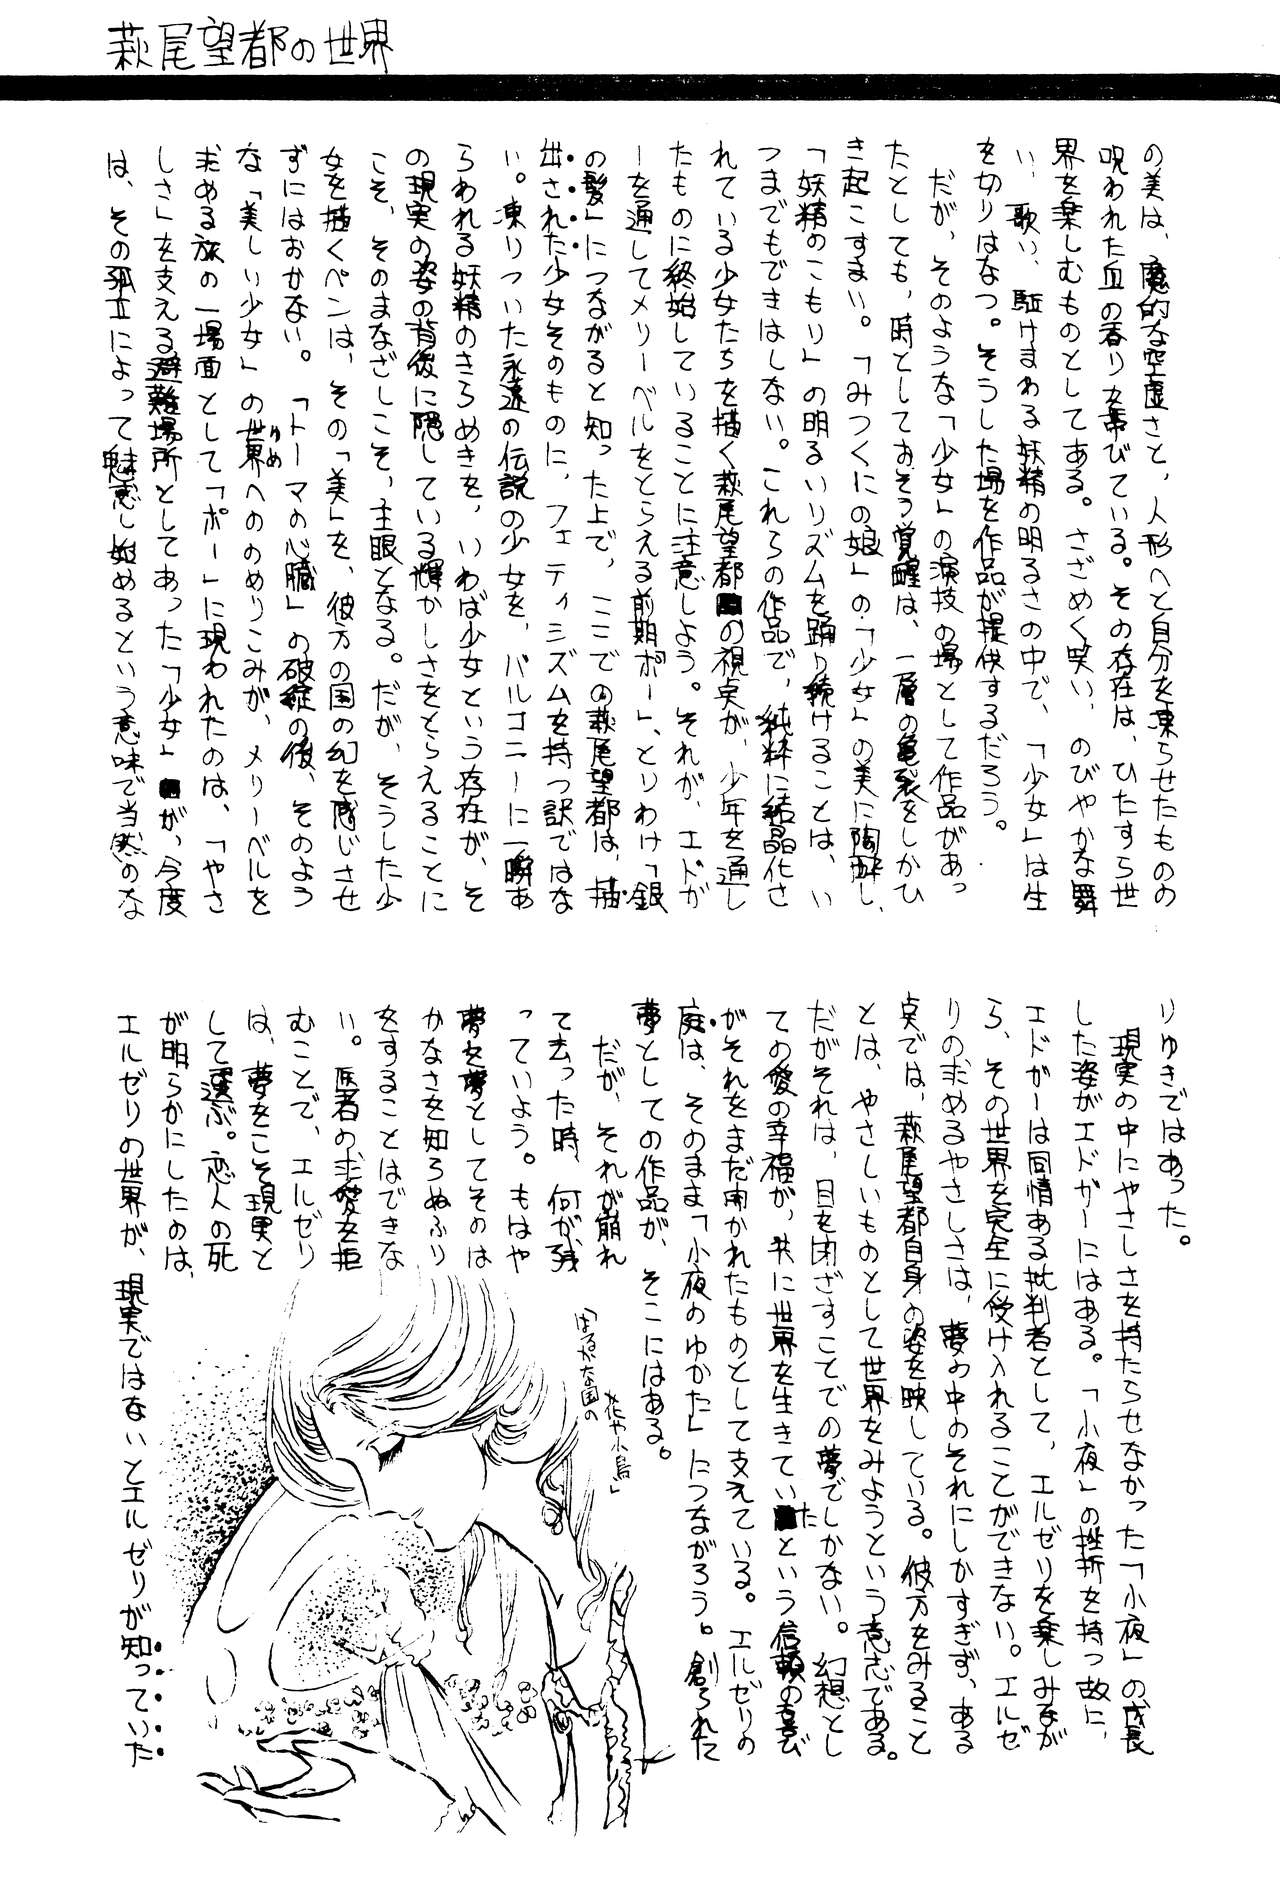 萩尾望都の世界
の美は、魔的な空虚さと、人形へと自分を凍らせたものの
呪われた血の香りを帯びている。その存在は、ひたすら世
界を楽しむものとしてある。さざめく笑い、のびやかな舞
い、歌い、駈けまわる妖精の明るさの中で、「少女」は生
を切りはなつ。そうした場を作品が提供するだろう。
だが、そのような「少女」の演技の場として作品があっ
たとしても、時としておそう覚醒は、一層の亀裂をしかひ
き起こすまい。「みつくにの娘」の「少女」の美に陶酔し、
「妖精のこもり」の明るいリズムを踊り続けることは、い
つまでもできはしない。これらの作品で、純粋に結晶化さ
れている少女たちを描く萩尾望都の視点が、少年を通し
たものに終始していることに注意しよう。それが、エドガ
ーを通してメリーベルをとらえる前期ポー」、とりわけ「銀
の髪」につながると知った上で、ここでの萩尾望都は、描
出された少女そのものに、フェティシズムを持つ訳ではな
い。凍りついた永遠の伝説の少女を、バルコニーに一瞬あ
らわれる妖精のきらめきを、いわば少女という存在が、そ
の現実の姿の背後に隠している輝かしさをとらえることに
こそ、そのまなざしこそ、主眼となる。だが、そうした少
女を描くペンは、その「美」を、彼方の国の幻を感じさせ
ずにはおかない。「トーマの心臓」の破綻の後、そのよう
な「美しい少女」の世界へのめりこみが、メリーベルを
ゆめ
求める旅の一場面として「ポー」に現われたのは、「やさ
しさ」を支える避難場所としてあった「少女」が、今度
は、その孤立によって魅惑し始めるという意味で当然のな
りゆきではあった。
現実の中にやさしさを持たらせなかった「小夜」の成長
した姿がエドガーにはある。「小夜」の挫折を持つ故に、
エドガーは同情ある批判者として、エルゼリを楽しみなが
ら、その世界を完全に受け入れることができない。エルゼ
リの求めるやさしさは、夢の中のそれにしかすぎず、ある
点では、萩尾望都自身の姿を映している。彼方をみること
とは、やさしいものとして世界をみようという意志である。
だがそれは、目を閉ざすことでの夢でしかない。幻想とし
ての愛の幸福が、共に世界を生きていたという信頼の喜び
がそれをまだ開かれたものとして支えている。エルゼリの
庭は、そのまま「小夜のゆかた」につながろう。創られた
夢としての作品が、そこにはある。
だが、それが崩れ
て去った時、何が残
っていよう。もはや
夢を夢としてそのは
かなさを知らぬふり
をすることはできな
い。医者の求愛を拒
むことで、エルゼリ
は、夢をこそ現実と
して選ぶ。恋人の死
が明らかにしたのは、
エルゼリの世界が、現実ではないとエルゼリが知っていた
「はるかな国の
花や小鳥」